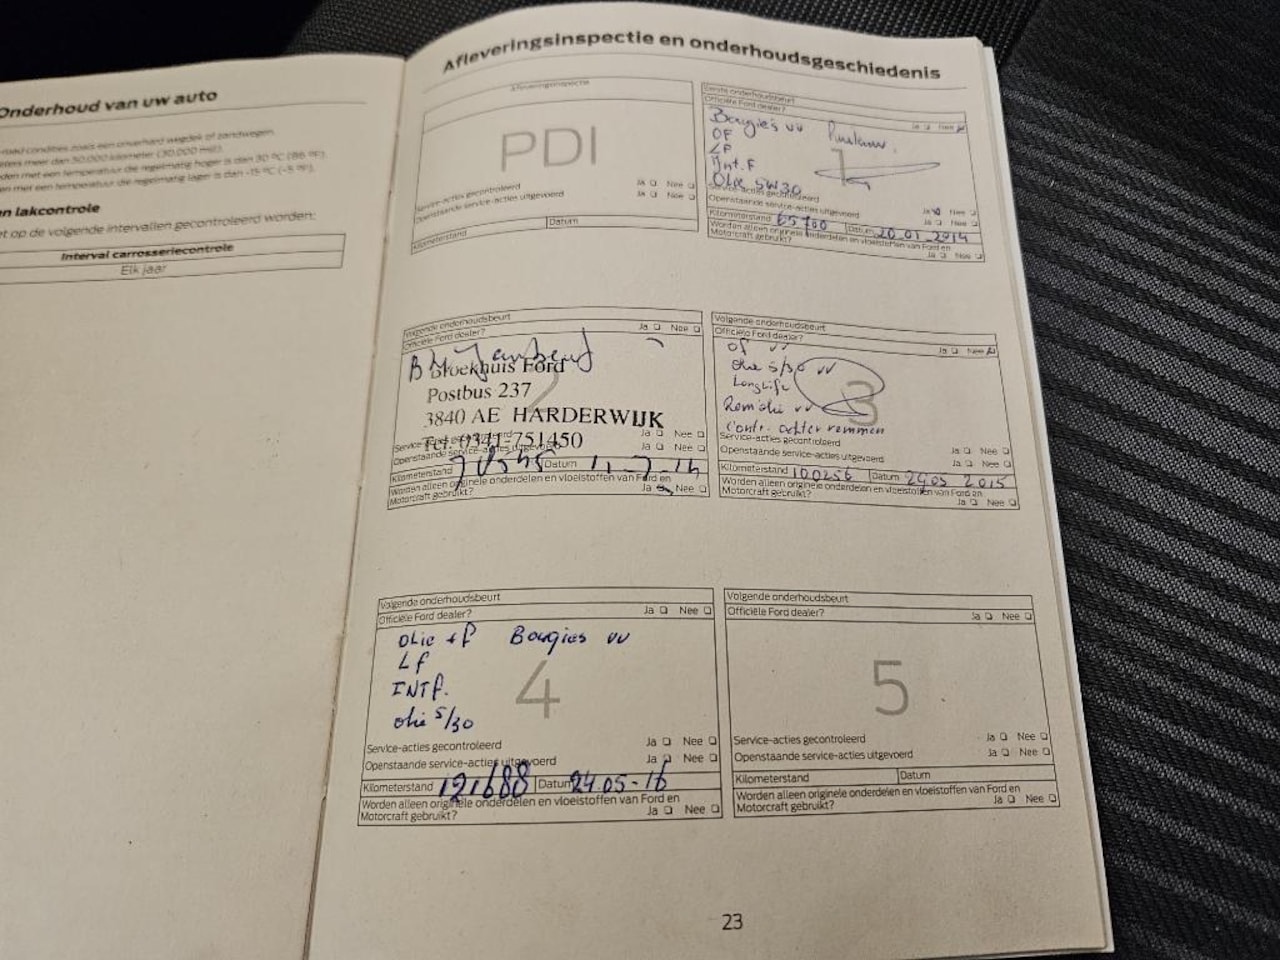 Onderhoud van uw auto
-road condities zoals een onverhard wegdek of zandwegen.
meer dan 50.000 kilometer (30.000 mijl).
den met een temperatuur die regelmatig hoger is dan 30 ºC (86 ºF).
en met een temperatuur die regelmatig lager is dan -15 ºC (-5 ºF).
en lakcontrole
et op de volgende intervallen gecontroleerd worden:
Interval carrosseriecontrole
Elk jaar
Afleveringsinspectie en onderhoudsgeschiedenis
Afleveringsinspectie
PDI
Service-acties gecontroleerd Ja Nee
Openstaande service-acties uitgevoerd Ja Nee
Kilometerstand Datum
Eerste onderhoudsbeurt
Officiële Ford dealer? Ja Nee
Bougies vv
OF
LF
Int.F
Olie 5W30
1
Service-acties gecontroleerd Ja Nee
Openstaande service-acties uitgevoerd Ja Nee
Kilometerstand 65700 Datum 20-01-2014
Worden alleen originele onderdelen en vloeistoffen van Ford en
Motorcraft gebruikt? Ja Nee
Volgende onderhoudsbeurt
Officiële Ford dealer? Ja Nee
2
Broekhuis Ford
Postbus 237
3840 AE HARDERWIJK
Tel. 0341-751450
Service-acties gecontroleerd Ja Nee
Openstaande service-acties uitgevoerd Ja Nee
Kilometerstand Datum 11-7-14
Worden alleen originele onderdelen en vloeistoffen van Ford en
Motorcraft gebruikt? Ja Nee
Volgende onderhoudsbeurt
Officiële Ford dealer? Ja Nee
OF vv
Olie 5/30 vv
Longlife
Remolie vv
Contr. achter remmen
3
Service-acties gecontroleerd Ja Nee
Openstaande service-acties uitgevoerd Ja Nee
Kilometerstand 100256 Datum 29 05 2015
Worden alleen originele onderdelen en vloeistoffen van Ford en
Motorcraft gebruikt? Ja Nee
Volgende onderhoudsbeurt
Officiële Ford dealer? Ja Nee
Olie +f Bougies vv
Lf
INTf.
olie 5/30
4
Service-acties gecontroleerd Ja Nee
Openstaande service-acties uitgevoerd Ja Nee
Kilometerstand 121688 Datum 24-05-16
Worden alleen originele onderdelen en vloeistoffen van Ford en
Motorcraft gebruikt? Ja Nee
Volgende onderhoudsbeurt
Officiële Ford dealer? Ja Nee
5
Service-acties gecontroleerd Ja Nee
Openstaande service-acties uitgevoerd Ja Nee
Kilometerstand Datum
Worden alleen originele onderdelen en vloeistoffen van Ford en
Motorcraft gebruikt? Ja Nee
23